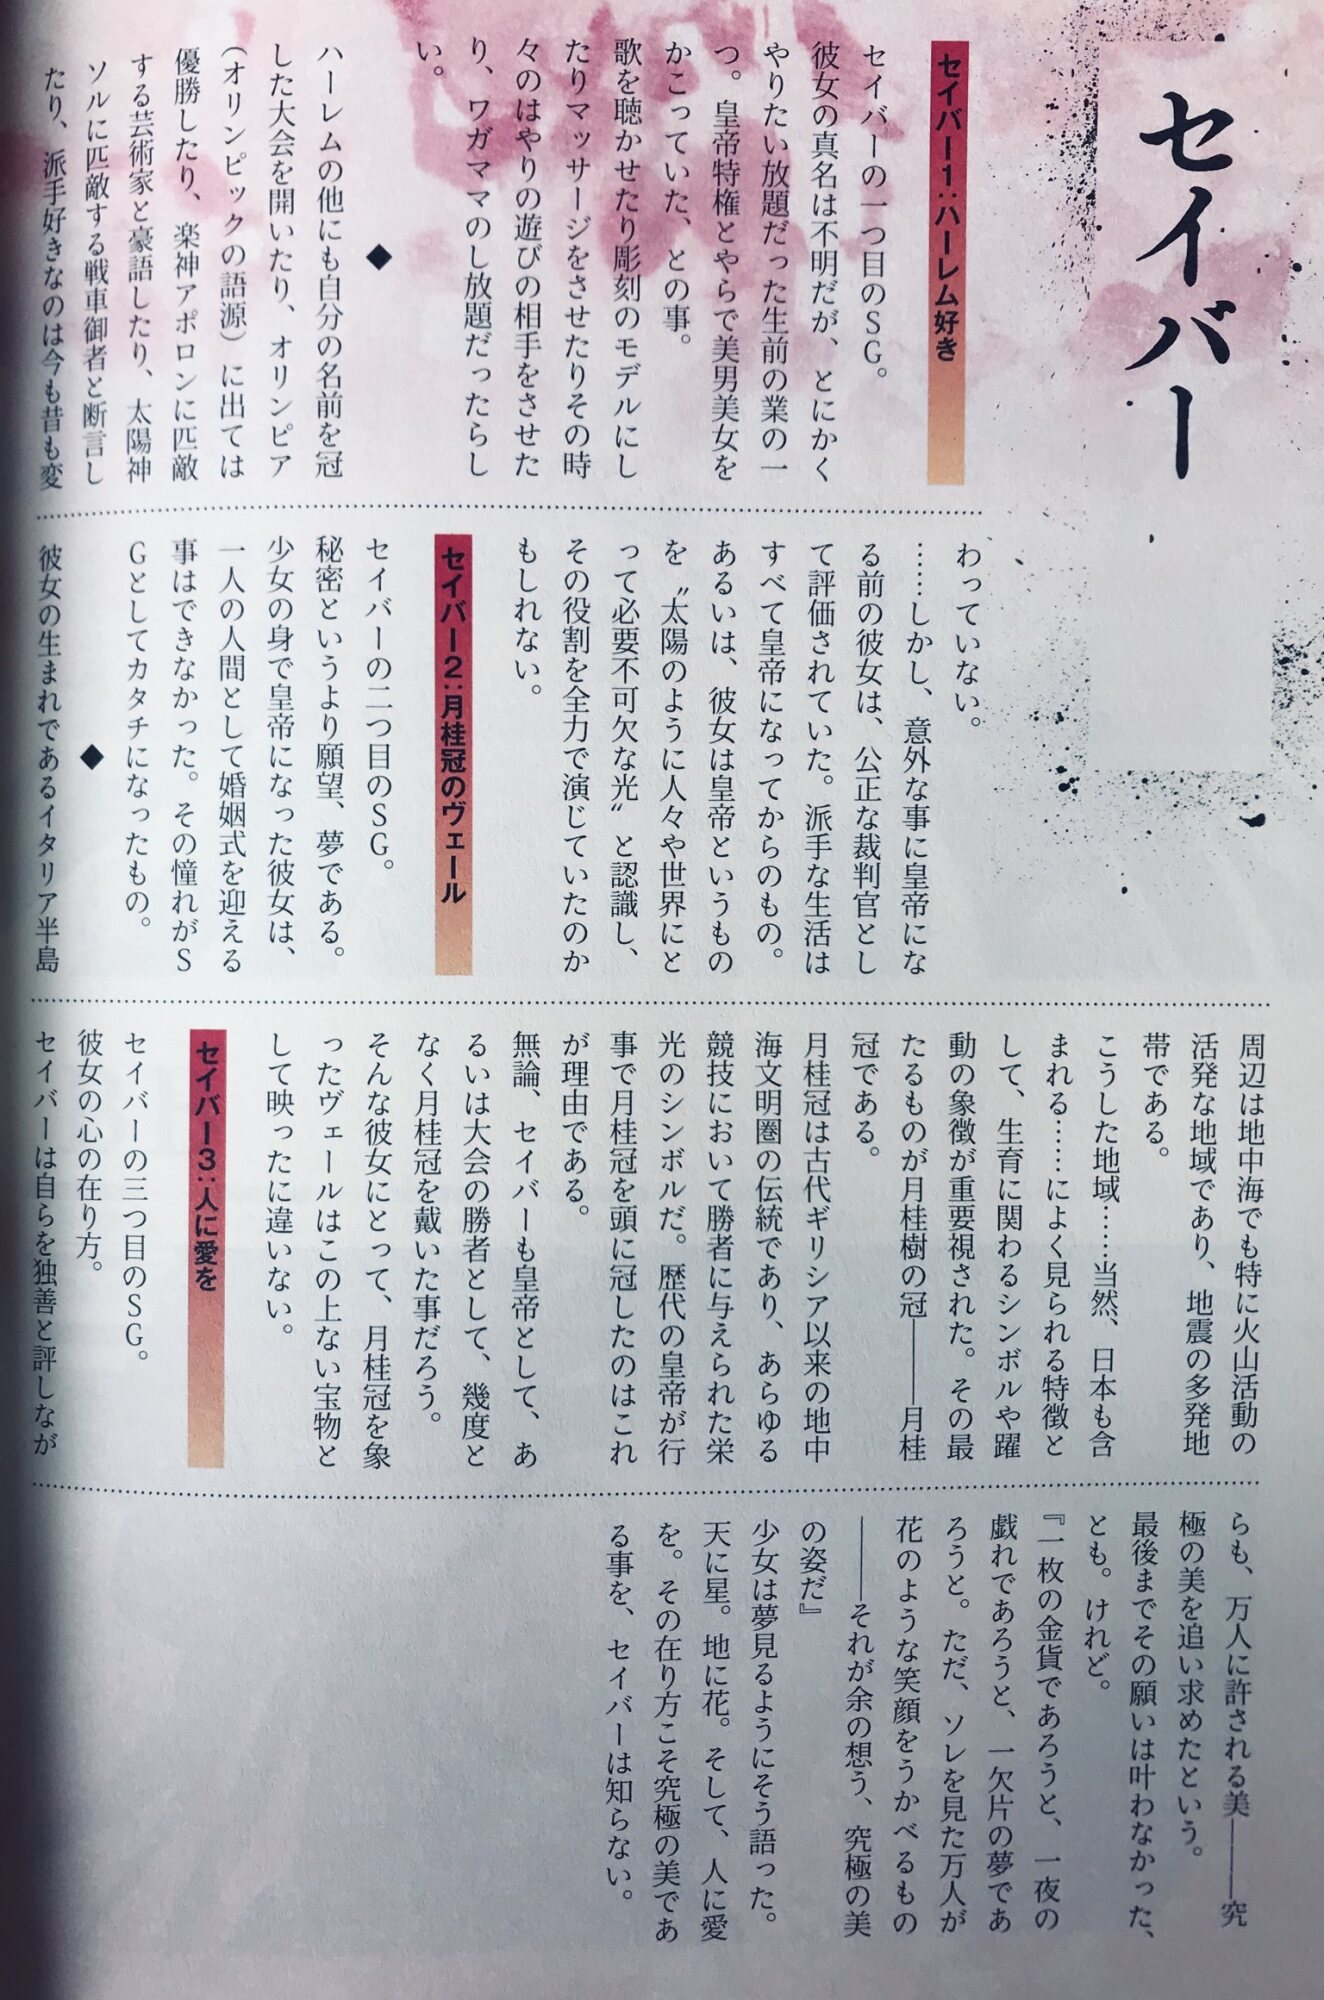 セイバー
セイバー1:ハーレム好き
セイバーの一つ目のSG。
彼女の真名は不明だが、とにかく
やりたい放題だった生前の業の一
つ。皇帝特権とやらで美男美女を
かこっていた、との事。
歌を聴かせたり彫刻のモデルにし
たりマッサージをさせたりその時
々のはやりの遊びの相手をさせた
り、ワガママのし放題だったらし
い。
◆
ハーレムの他にも自分の名前を冠
した大会を開いたり、オリンピア
(オリンピックの語源)に出ては
優勝したり、楽神アポロンに匹敵
する芸術家と豪語したり、太陽神
ソルに匹敵する戦車御者と断言し
たり、派手好きなのは今も昔も変
わっていない。
……しかし、意外な事に皇帝にな
る前の彼女は、公正な裁判官とし
て評価されていた。派手な生活は
すべて皇帝になってからのもの。
あるいは、彼女は皇帝というもの
を〝太陽のように人々や世界にと
って必要不可欠な光〟と認識し、
その役割を全力で演じていたのか
もしれない。
セイバー2:月桂冠のヴェール
セイバーの二つ目のSG。
秘密というより願望、夢である。
少女の身で皇帝になった彼女は、
一人の人間として婚姻式を迎える
事はできなかった。その憧れがS
Gとしてカタチになったもの。
◆
彼女の生まれであるイタリア半島
周辺は地中海でも特に火山活動の
活発な地域であり、地震の多発地
帯である。
こうした地域……当然、日本も含
まれる……によく見られる特徴と
して、生育に関わるシンボルや躍
動の象徴が重要視された。その最
たるものが月桂樹の冠――月桂
冠である。
月桂冠は古代ギリシア以来の地中
海文明圏の伝統であり、あらゆる
競技において勝者に与えられた栄
光のシンボルだ。歴代の皇帝が行
事で月桂冠を頭に冠したのはこれ
が理由である。
無論、セイバーも皇帝として、あ
るいは大会の勝者として、幾度と
なく月桂冠を戴いた事だろう。
そんな彼女にとって、月桂冠を象
ったヴェールはこの上ない宝物と
して映ったに違いない。
セイバー3:人に愛を
セイバーの三つ目のSG。
彼女の心の在り方。
セイバーは自らを独善と評しなが
らも、万人に許される美――究
極の美を追い求めたという。
最後までその願いは叶わなかった、
とも。けれど。
『一枚の金貨であろうと、一夜の
戯れであろうと、一欠片の夢であ
ろうと。ただ、ソレを見た万人が
花のような笑顔をうかべるもの
――それが余の想う、究極の美
の姿だ』
少女は夢見るようにそう語った。
天に星。地に花。そして、人に愛
を。その在り方こそ究極の美であ
る事を、セイバーは知らない。